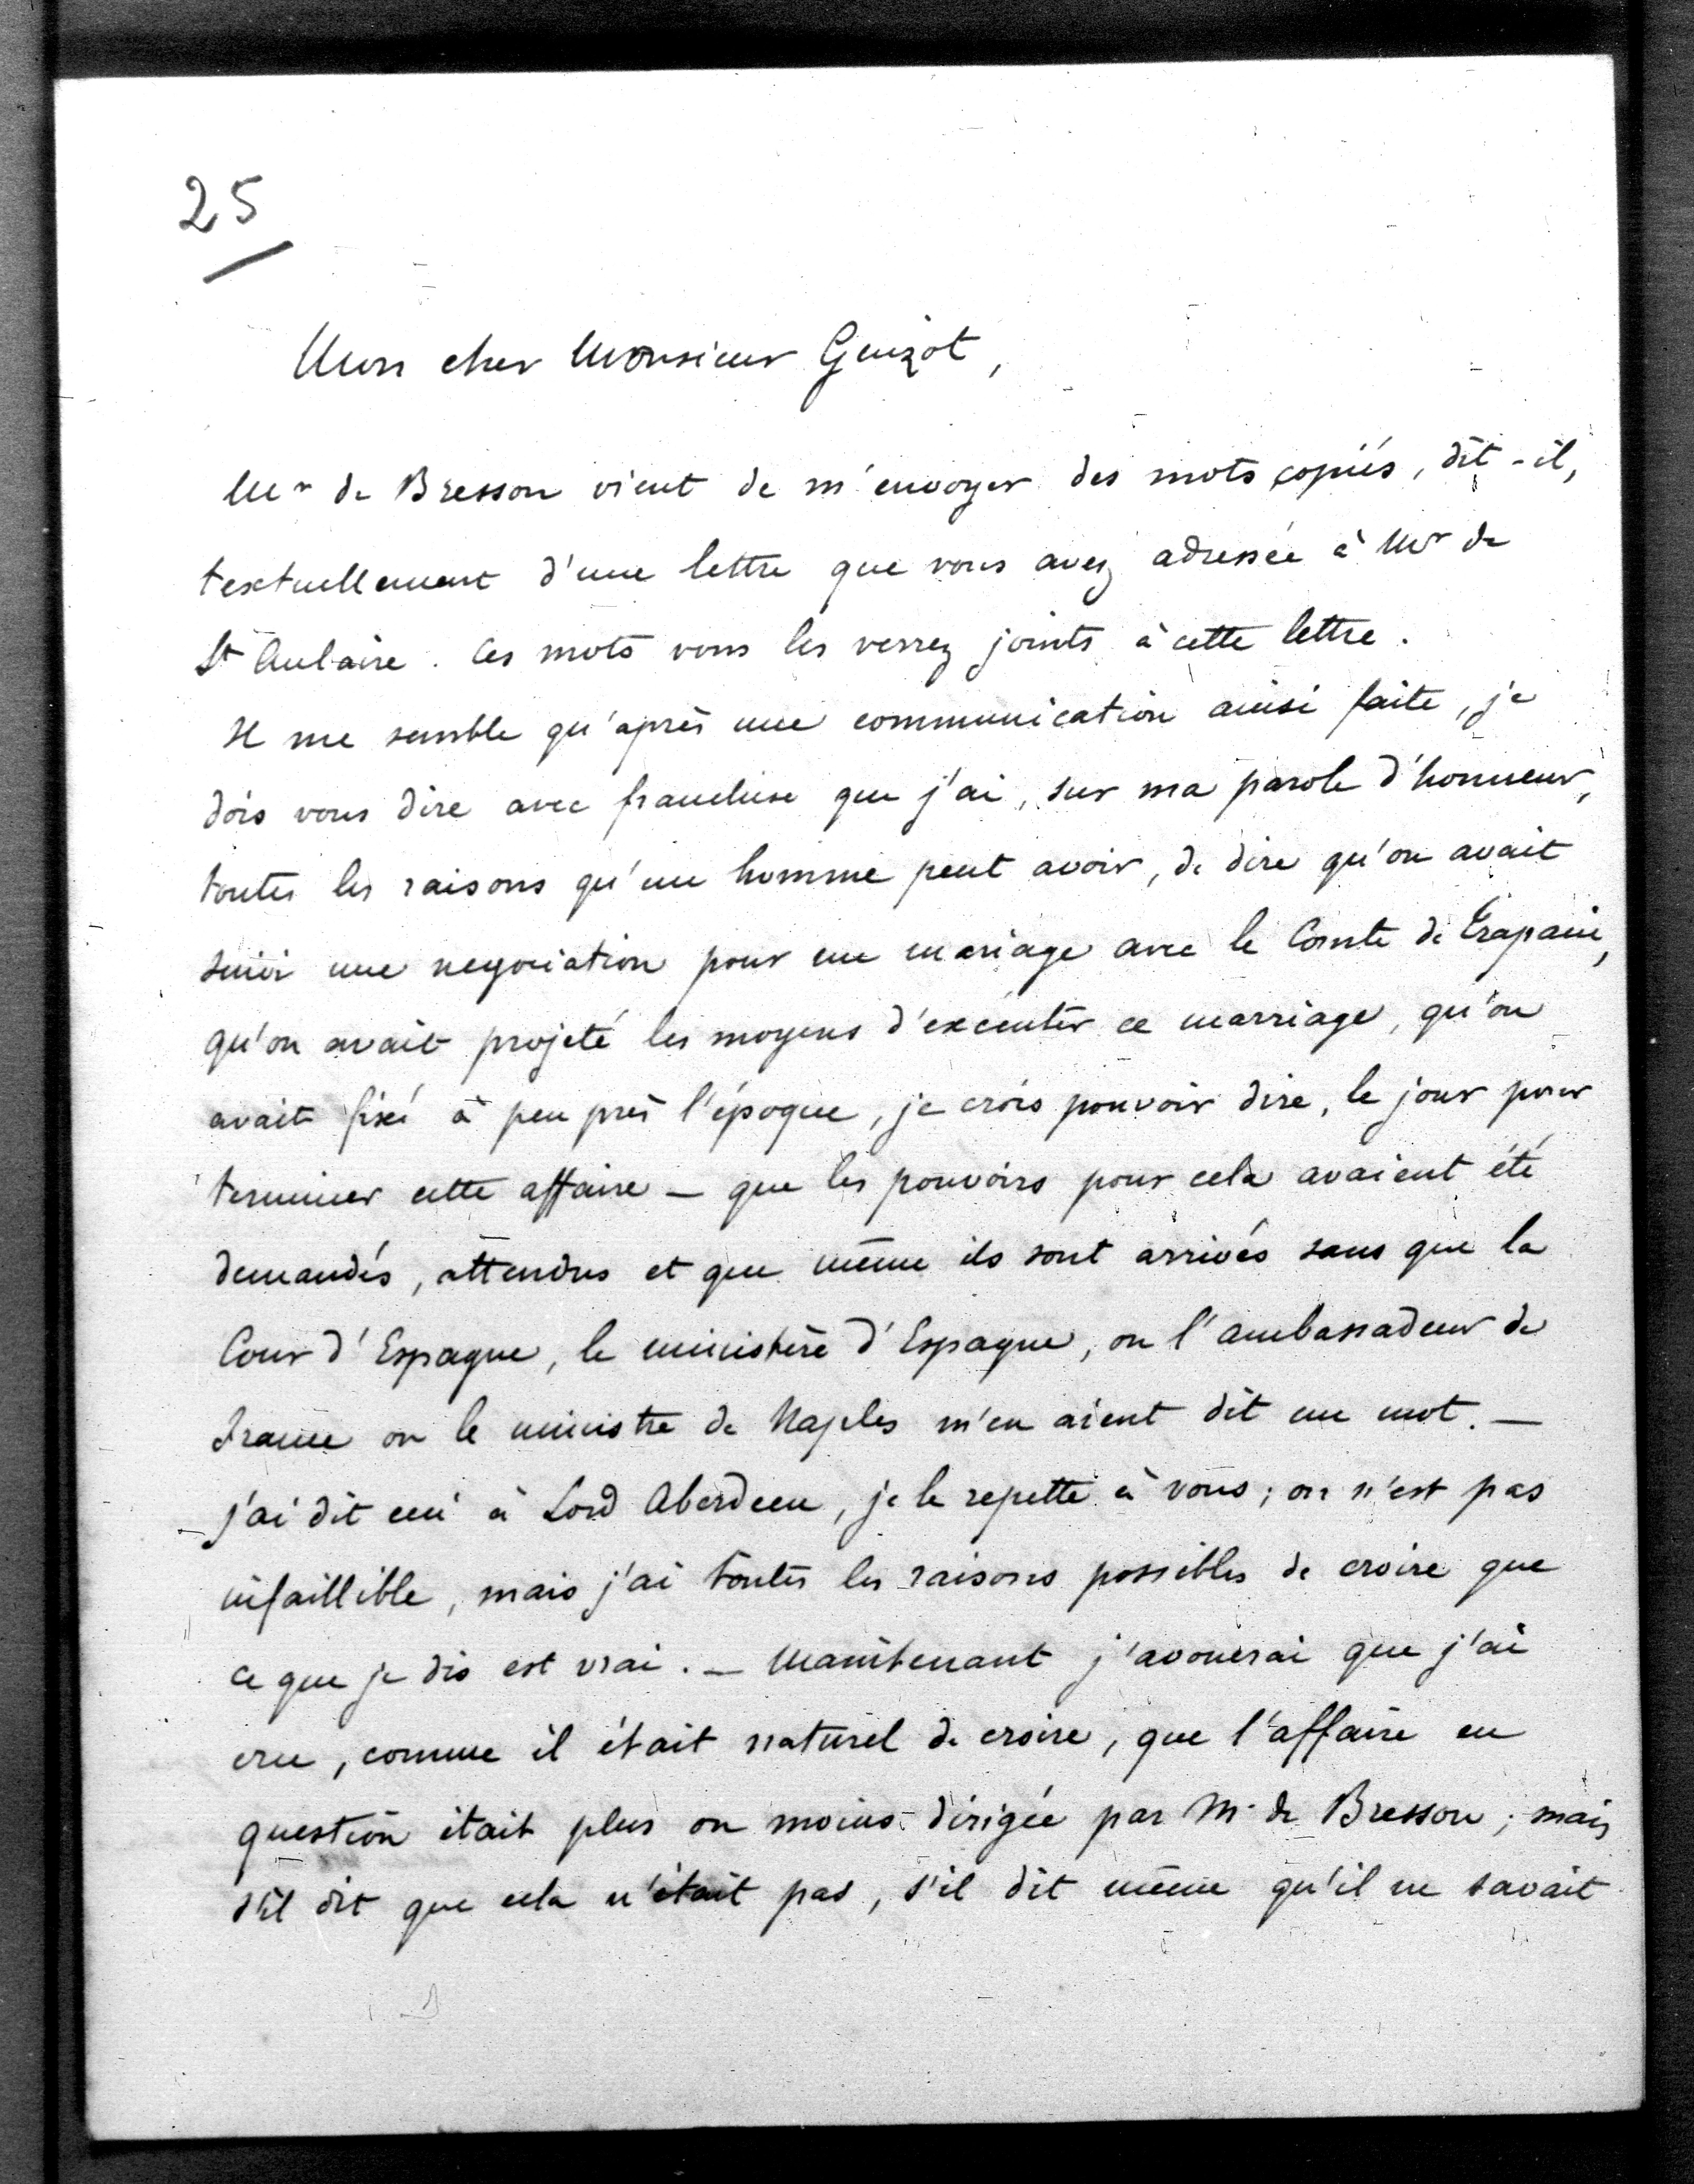 25
Mon cher Monsieur Guizot,
Mr de Bresson vient de m'envoyer des mots copiés, dit-il,
textuellement d'une lettre que vous avez adressée à Mr de
St Aulaire. Ces mots vous les verrez joints à cette lettre.
Il me semble qu'après une communication ainsi faite, je
dois vous dire avec franchise que j'ai, sur ma parole d'honneur,
toutes les raisons qu'un homme peut avoir, de dire qu'on avait
suivi une negociation pour un mariage avec le Comte de Trapani,
qu'on avait projeté les moyens d'exécuter ce marriage, qu'on
avait fixé à peu près l'époque, je crois pouvoir dire, le jour pour
terminer cette affaire — que les pouvoirs pour cela avaient été
demandés, attendus et que même ils sont arrivés sans que la
Cour d'Espagne, le ministère d'Espagne, ou l'ambassadeur de
France ou le ministre de Naples m'en aient dit un mot. —
j'ai dit ceci à Lord Aberdeen, je le repette à vous; on n'est pas
infaillible, mais j'ai toutes les raisons possibles de croire que
ce que je dis est vrai. — Maintenant j'avouerai que j'ai
cru, comme il était naturel de croire, que l'affaire en
question était plus ou moins dirigée par M. de Bresson; mais
s'il dit que cela n'était pas, s'il dit même qu'il ne savait